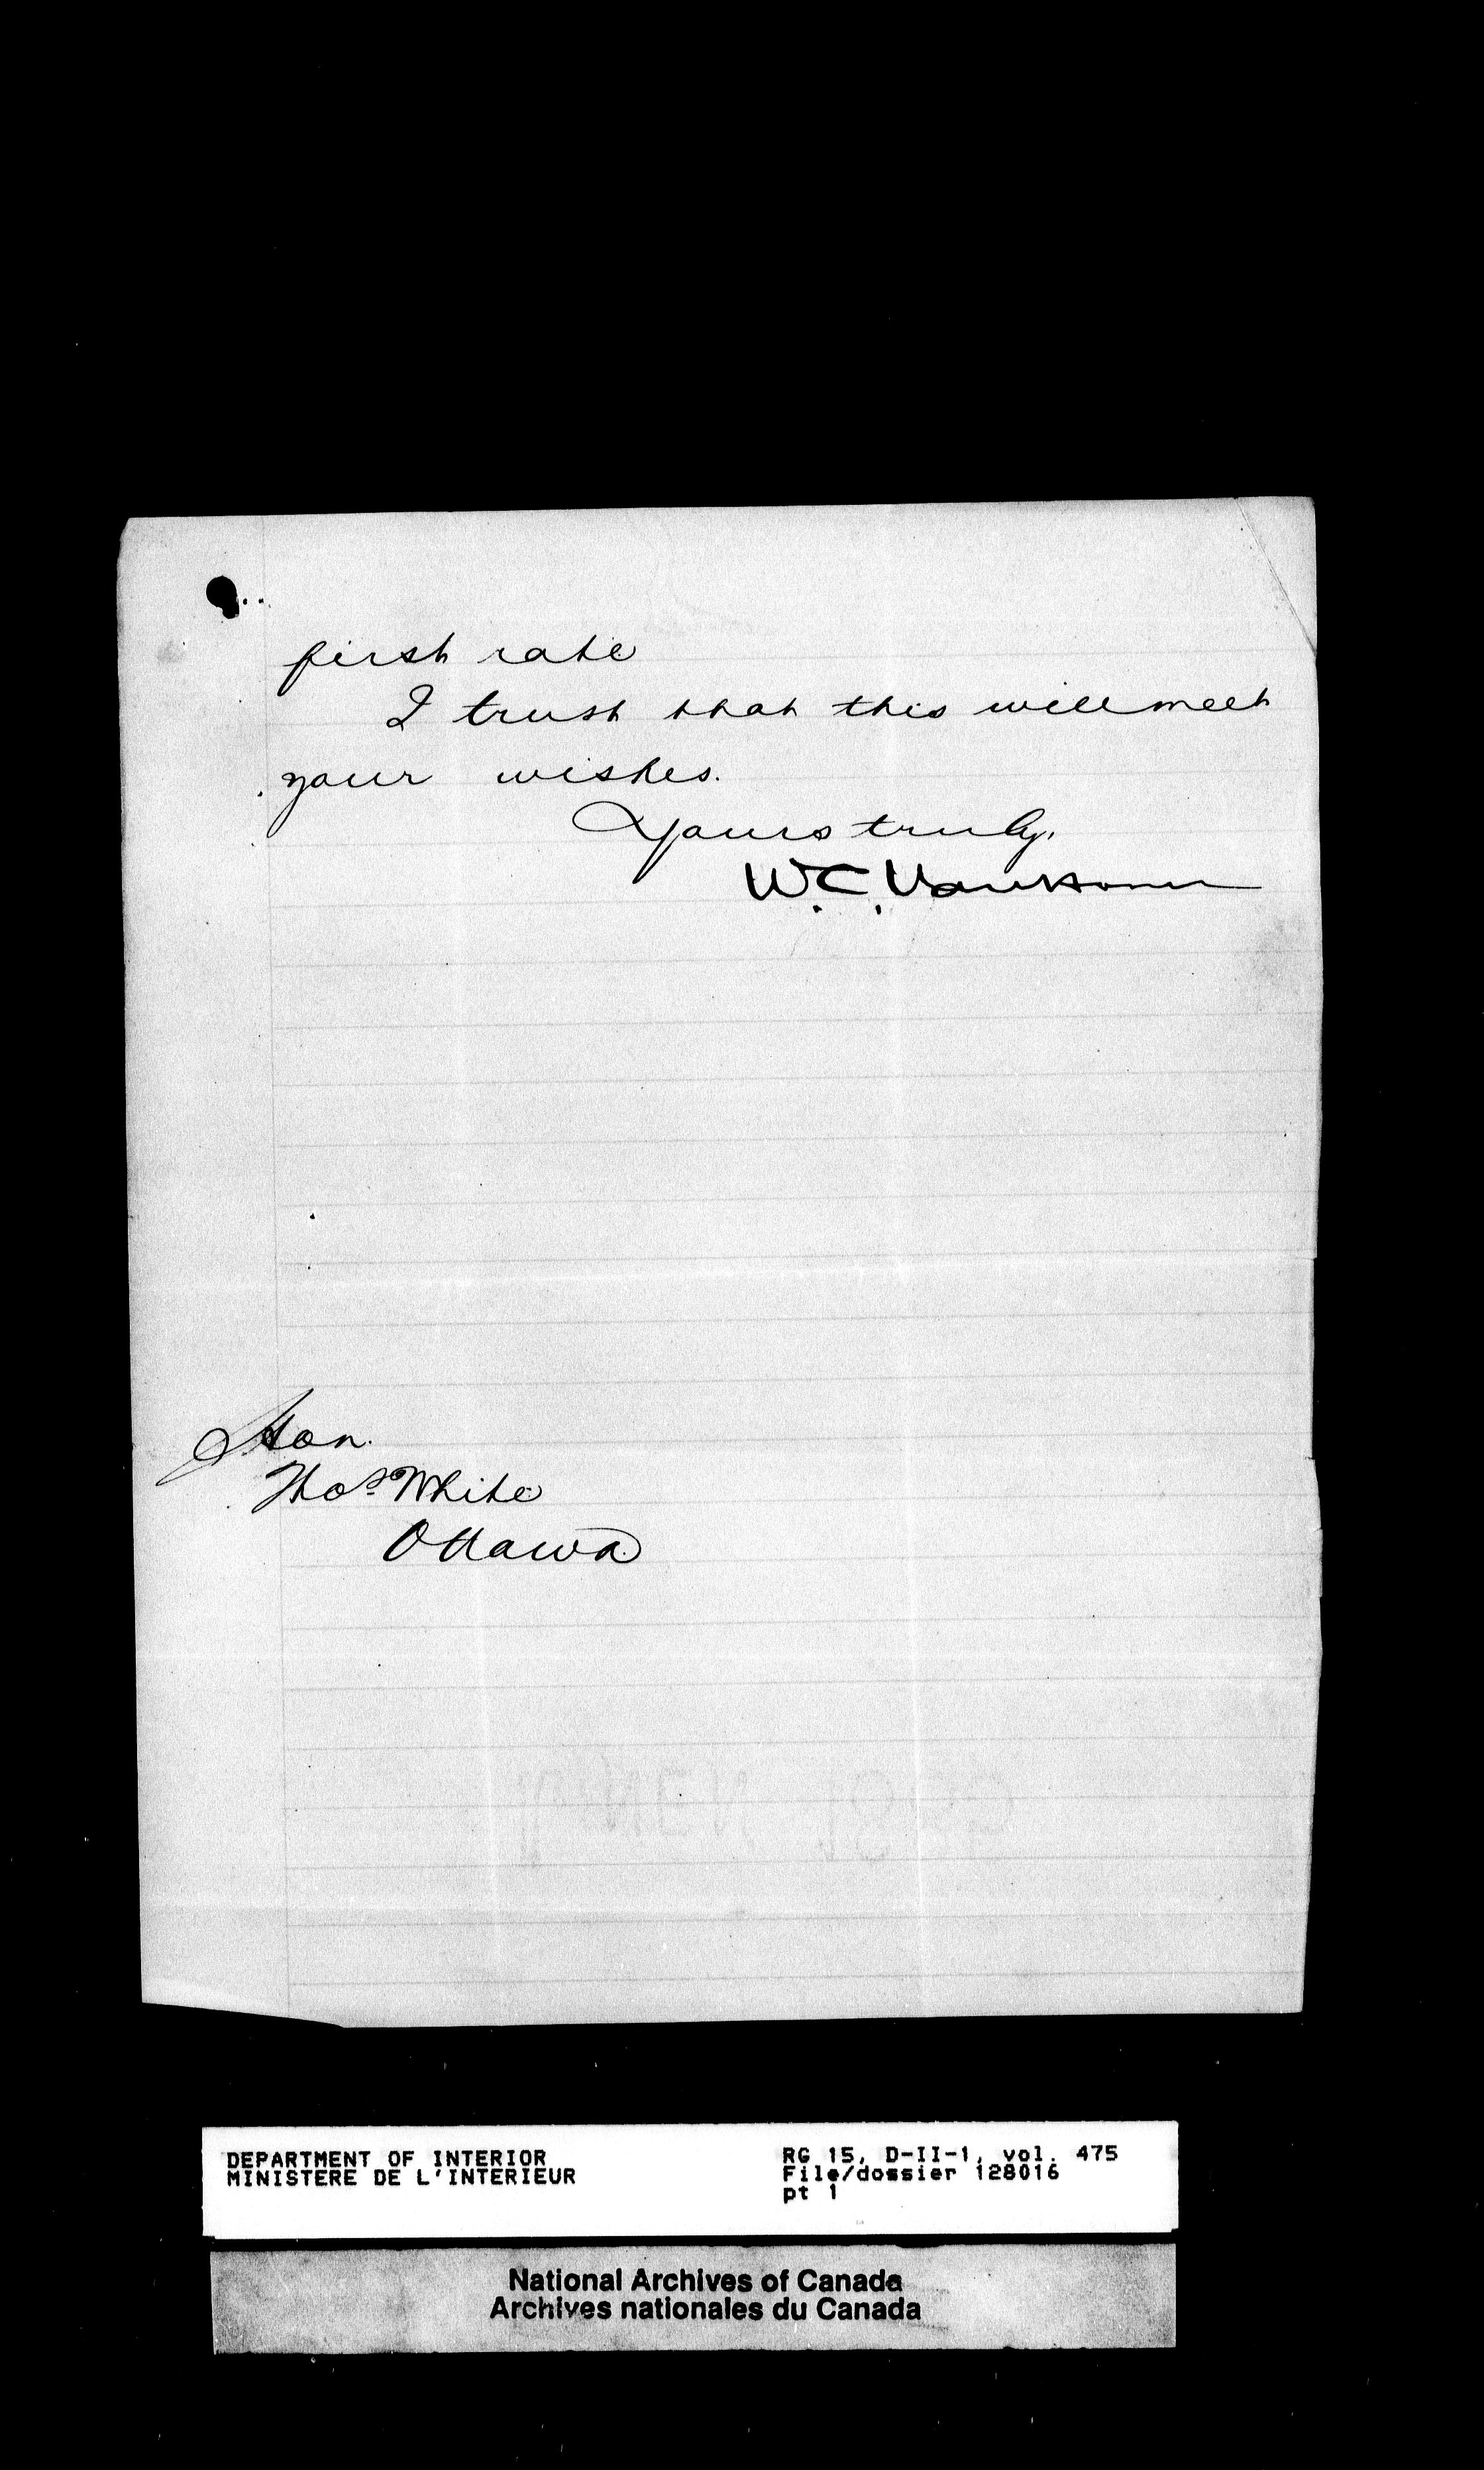 first rate
I trust that this will meet
your wishes.
Yours truly,
W.C. Van Horne
Hon.
Thos White
Ottawa
DEPARTMENT OF INTERIOR
MINISTERE DE L'INTERIEUR
RG 15, D-II-1, vol. 475
File/dossier 128016
pt 1
National Archives of Canada
Archives nationales du Canada